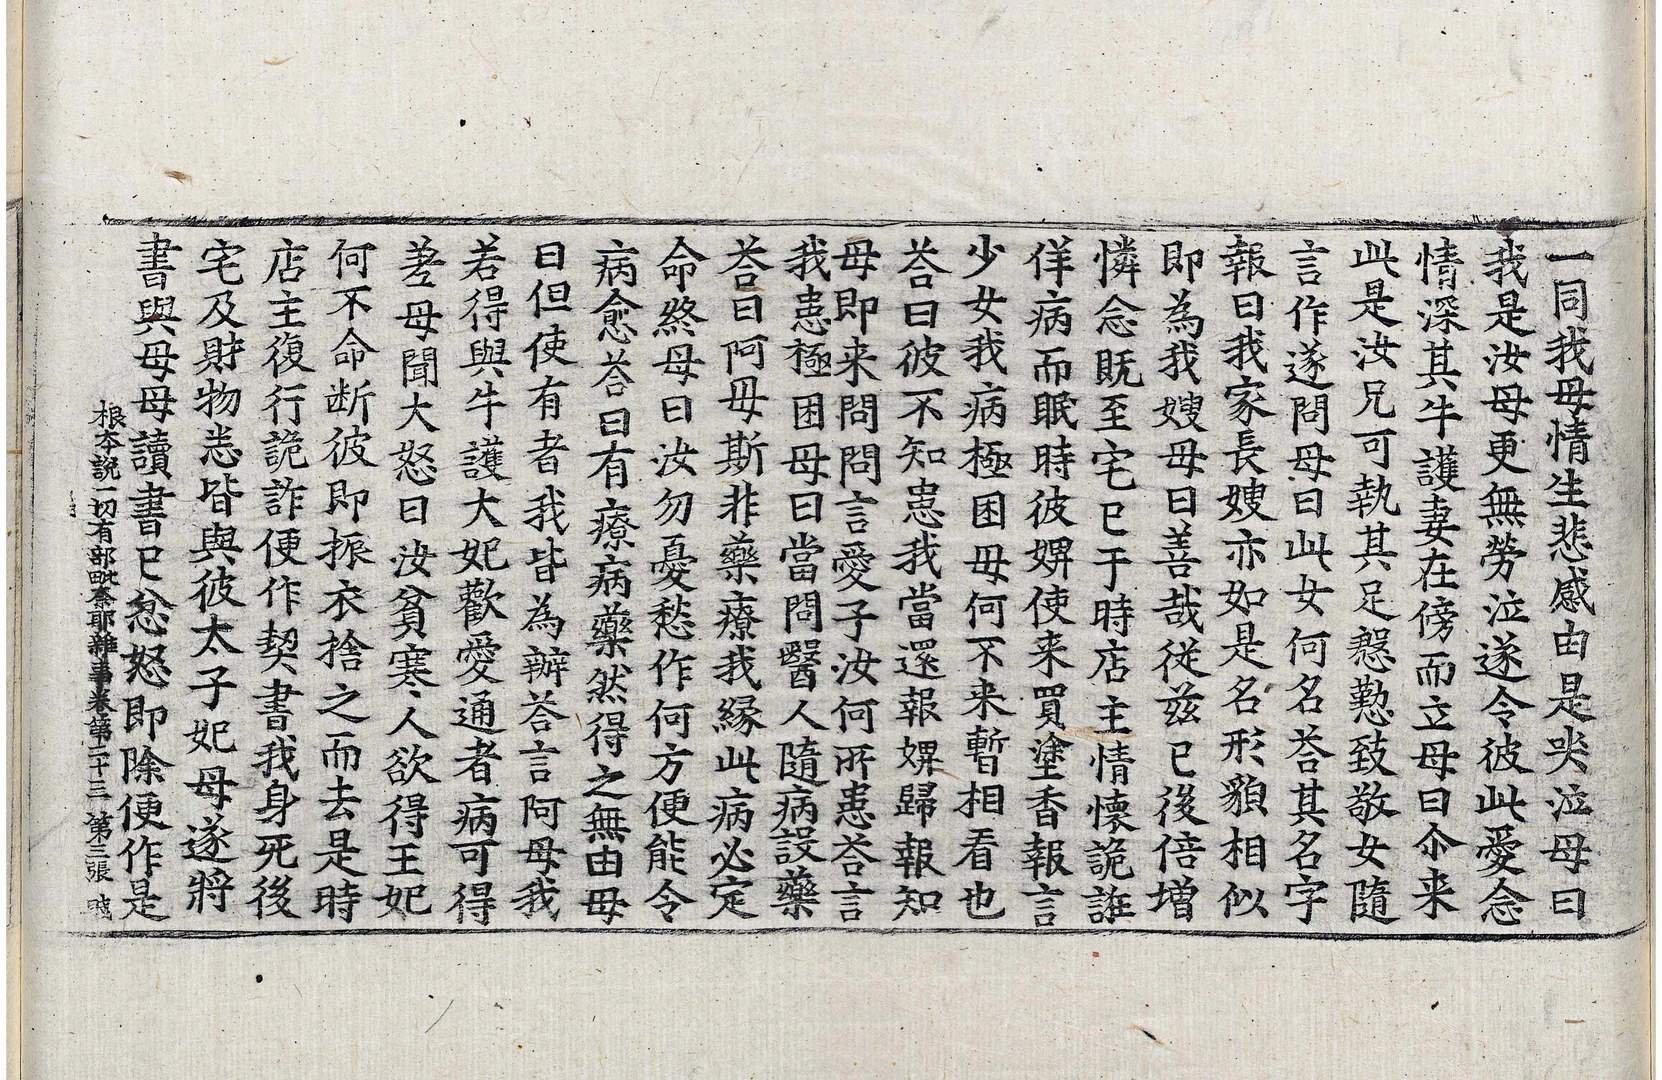 一同我母情生悲感由是哭泣母曰
我是汝母更無勞泣遂令彼此愛念
情深其牛護妻在傍而立母曰尒来
此是汝兄可執其足慇懃致敬女隨
言作遂問母曰此女何名荅其名字
報曰我家長嫂亦如是名形貌相似
即為我嫂母曰善哉従兹已後倍增
憐念既至宅已于時店主情懷詭誑
佯病而眠時彼婢使来買塗香報言
少女我病極困母何不来暫相看也
荅曰彼不知患我當還報婢歸報知
母即来問問言愛子汝何所患荅言
我患極困母曰當問醫人隨病設藥
荅曰阿母斯非藥療我緣此病必定
命終母曰汝勿憂愁作何方便能令
病愈荅曰有療病藥然得之無由母
曰但使有者我皆為辦荅言阿母我
若得與牛護大妃歡愛通者病可得
差母聞大怒曰汝貧寒人欲得王妃
何不命断彼即振衣捨之而去是時
店主復行詭詐便作契書我身死後
宅及財物悉皆與彼太子妃母遂將
書與母母讀書已忿怒即除便作是
根本說一切有部毗奈耶雜事卷第二十三 第三張